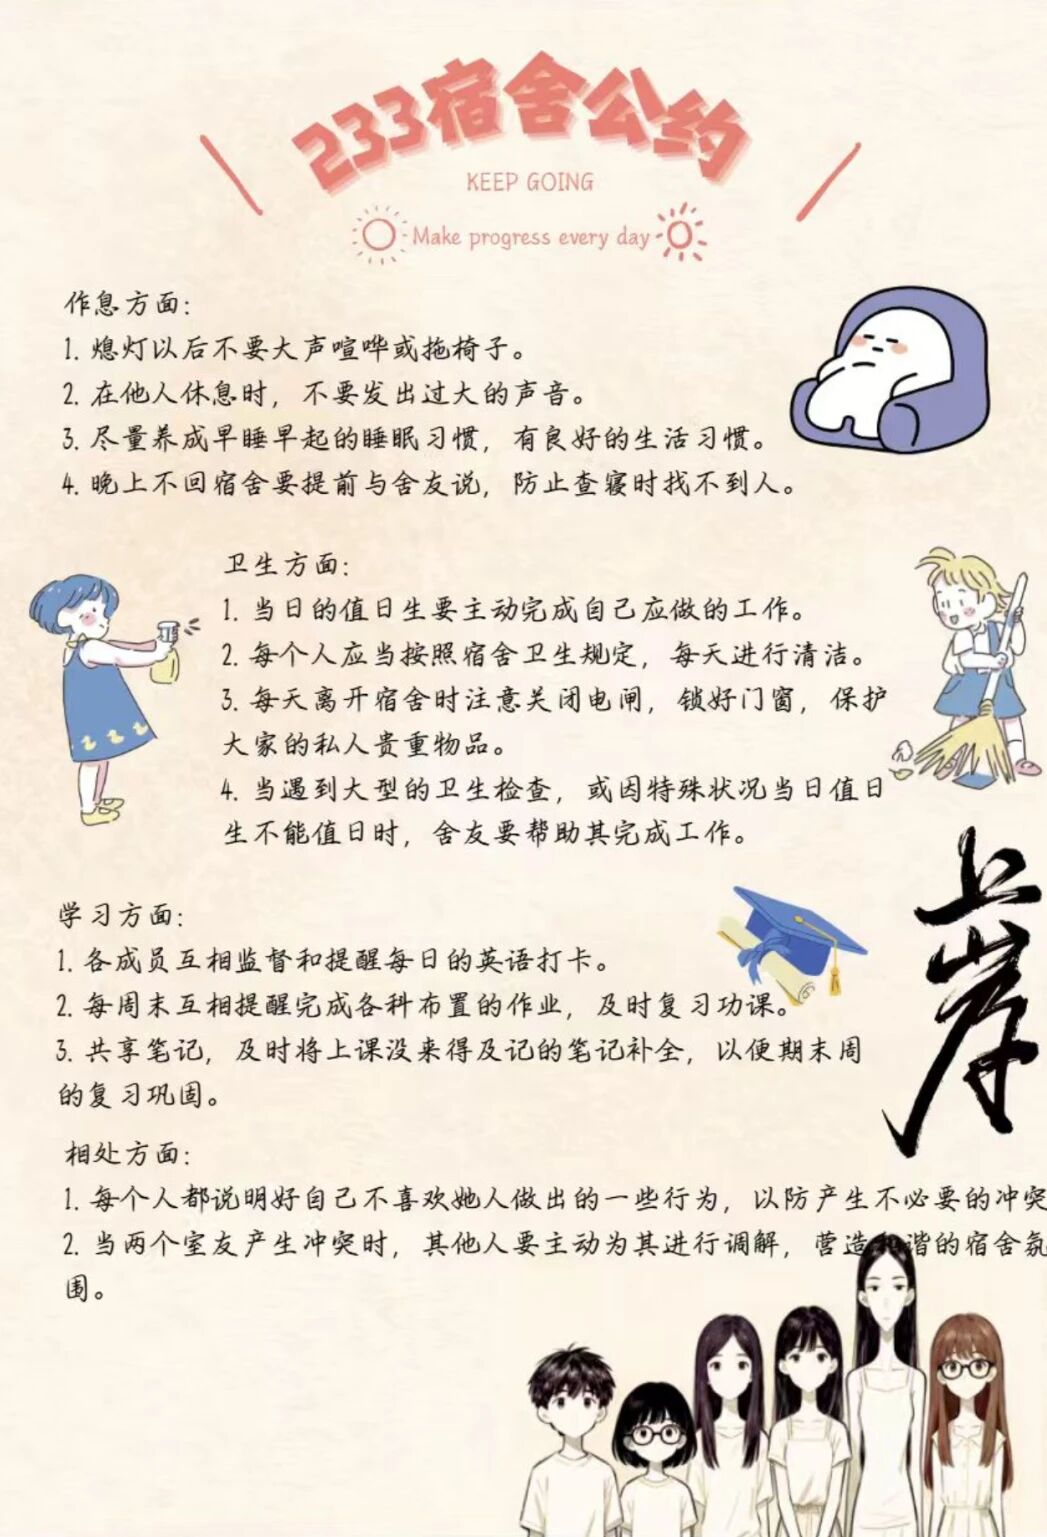 233宿舍公约
KEEP GOING
Make progress every day
作息方面：
1. 熄灯以后不要大声喧哗或拖椅子。
2. 在他人休息时，不要发出过大的声音。
3. 尽量养成早睡早起的睡眠习惯，有良好的生活习惯。
4. 晚上不回宿舍要提前与舍友说，防止查寝时找不到人。
卫生方面：
1. 当日的值日生要主动完成自己应做的工作。
2. 每个人应当按照宿舍卫生规定，每天进行清洁。
3. 每天离开宿舍时注意关闭电闸，锁好门窗，保护
大家的私人贵重物品。
4. 当遇到大型的卫生检查，或因特殊状况当日值日
生不能值日时，舍友要帮助其完成工作。
上岸
学习方面：
1. 各成员互相监督和提醒每日的英语打卡。
2. 每周末互相提醒完成各科布置的作业，及时复习功课。
3. 共享笔记，及时将上课没来得及记的笔记补全，以便期末周
的复习巩固。
相处方面：
1. 每个人都说明好自己不喜欢她人做出的一些行为，以防产生不必要的冲突
2. 当两个室友产生冲突时，其他人要主动为其进行调解，营造和谐的宿舍氛
围。